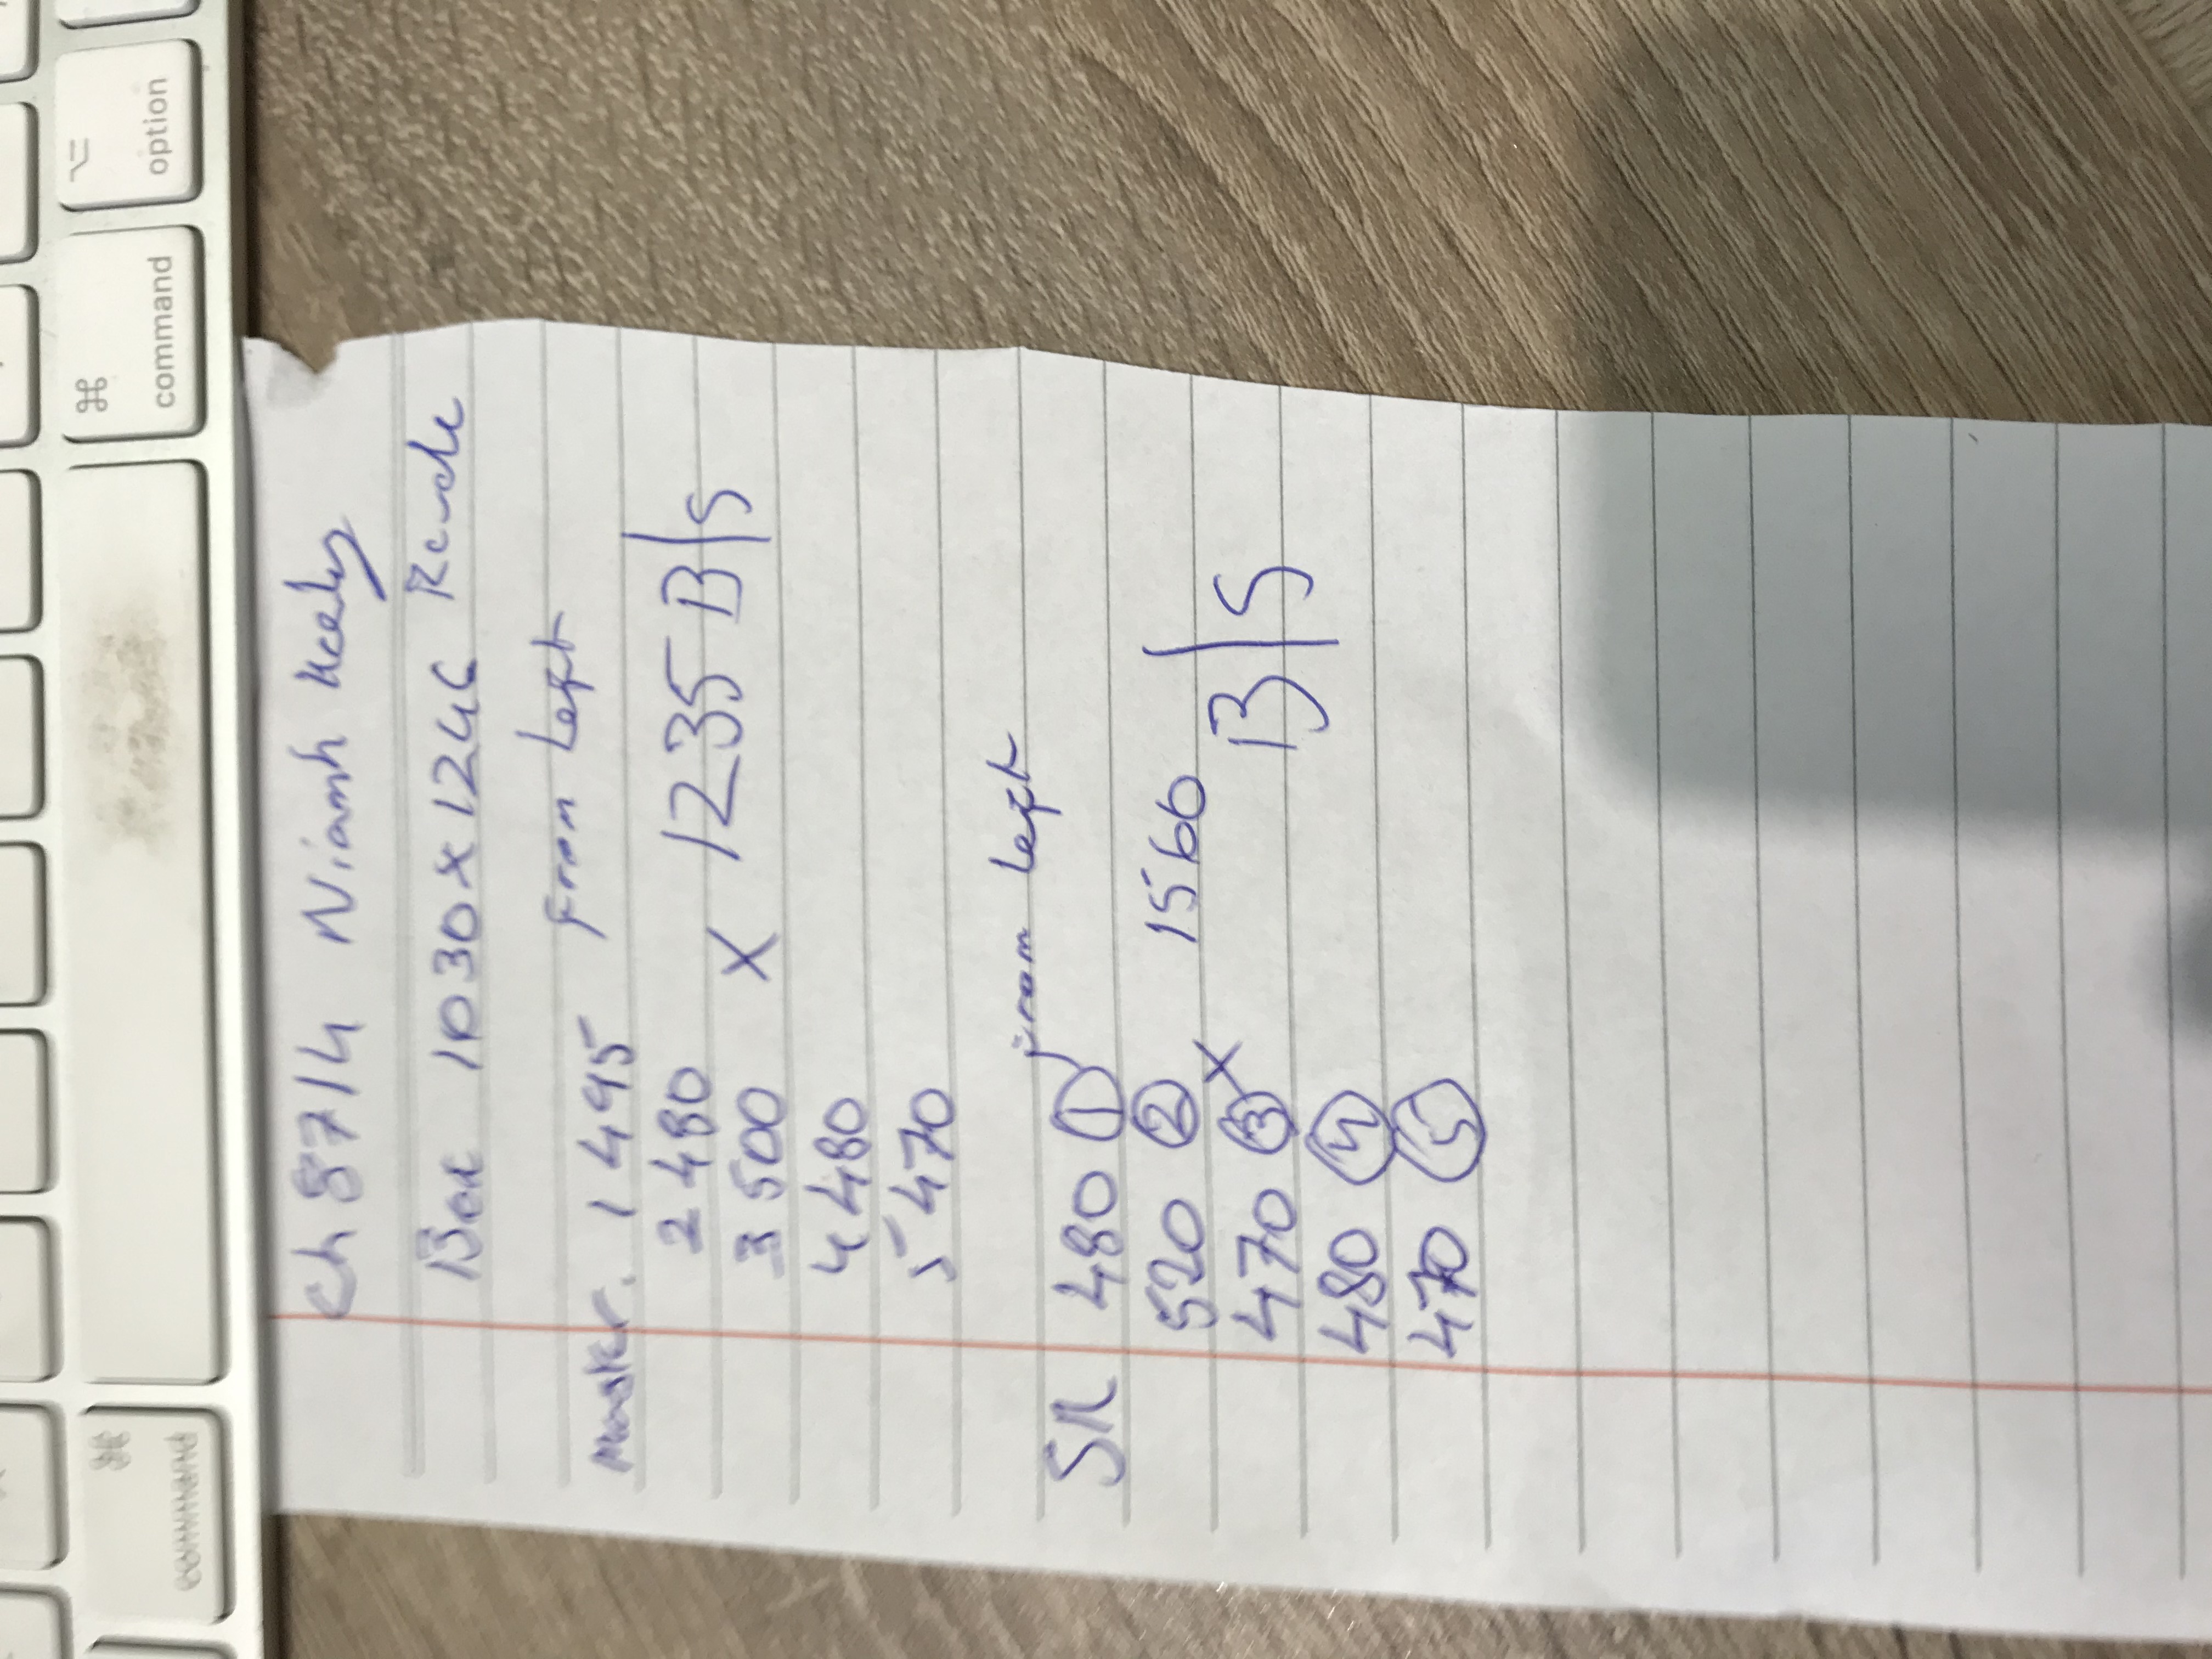 Ch 8714 Niamh Healy
1030 x 1246
Master. 1 495 From Left
2 480
3 500 x 1235 B/S
4 480
5 470
SR 480 ① from left
520 ② 1566
470 ③ x B/S
480 ④
470 ⑤
⌥
option
⌘
command
⌘
command